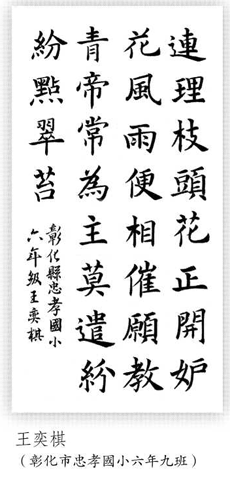 連理枝頭花正開妒
花風雨便相催願教
青帝常為主莫遣紛
紛點翠苔
彰化縣忠孝國小
六年級王奕棋
王奕棋
（彰化市忠孝國小六年九班）